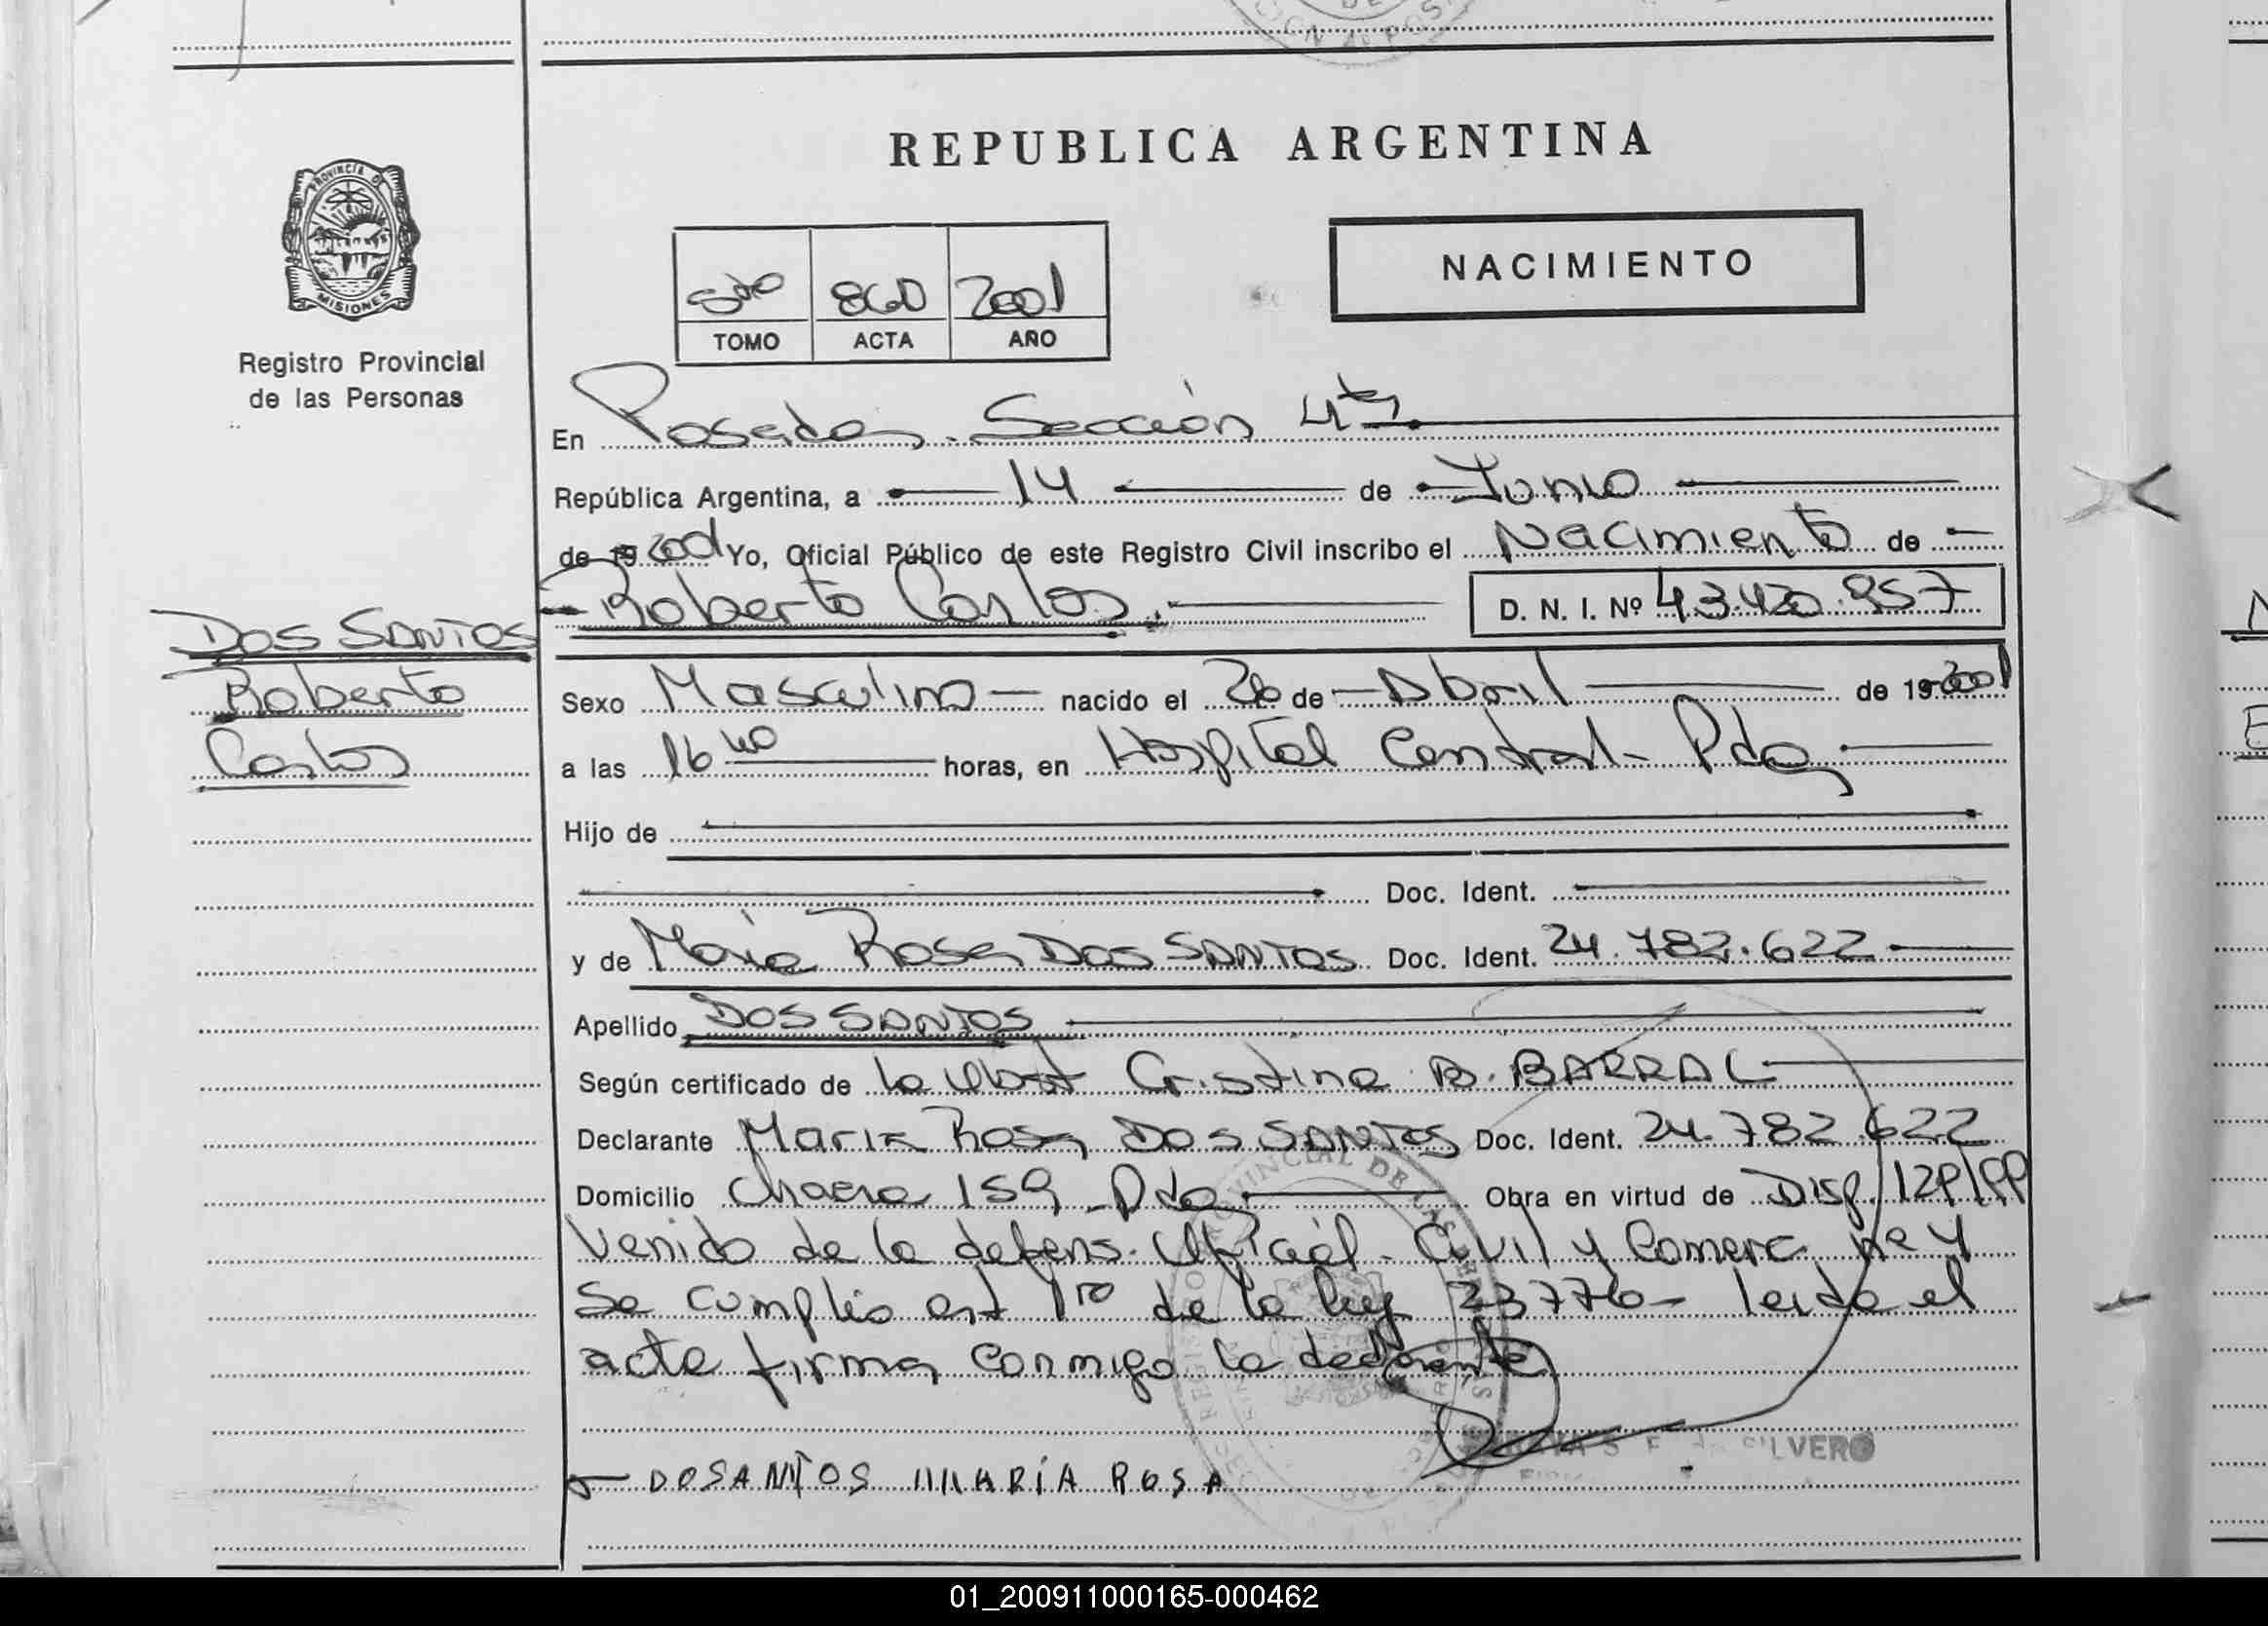 REPUBLICA ARGENTINA
PROVINCIA DE
MISIONES
Registro Provincial
de las Personas
NACIMIENTO
5to 860 2001
TOMO ACTA AÑO
En Posadas. Sección 4ta.
República Argentina, a 14 de Junio
de 19 2001 Yo, Oficial Público de este Registro Civil inscribo el Nacimiento de
Roberto Carlos. D. N. I. Nº 43.420.957
DOS SANTOS
Roberto
Carlos
Sexo Masculino nacido el 26 de Abril de 19 2001
a las 16 40 horas, en Hospital Central - Pdas
Hijo de
Doc. Ident.
y de María Rosa DOS SANTOS Doc. Ident. 24.782.622
Apellido DOS SANTOS
Según certificado de la Obst Cristina B. BARRAL
Declarante María Rosa DOS SANTOS Doc. Ident. 24.782.622
Domicilio Chacra 159 - Pdas. Obra en virtud de Disp/129/99
Venido de la defens. Oficial - Civil y Comerc Nº 4
Se cumplio art 1ro de la ley 23776 - leida el
acta firma conmigo la declarante
SILVERO
DOSANTOS MARÍA ROSA
01_200911000165-000462